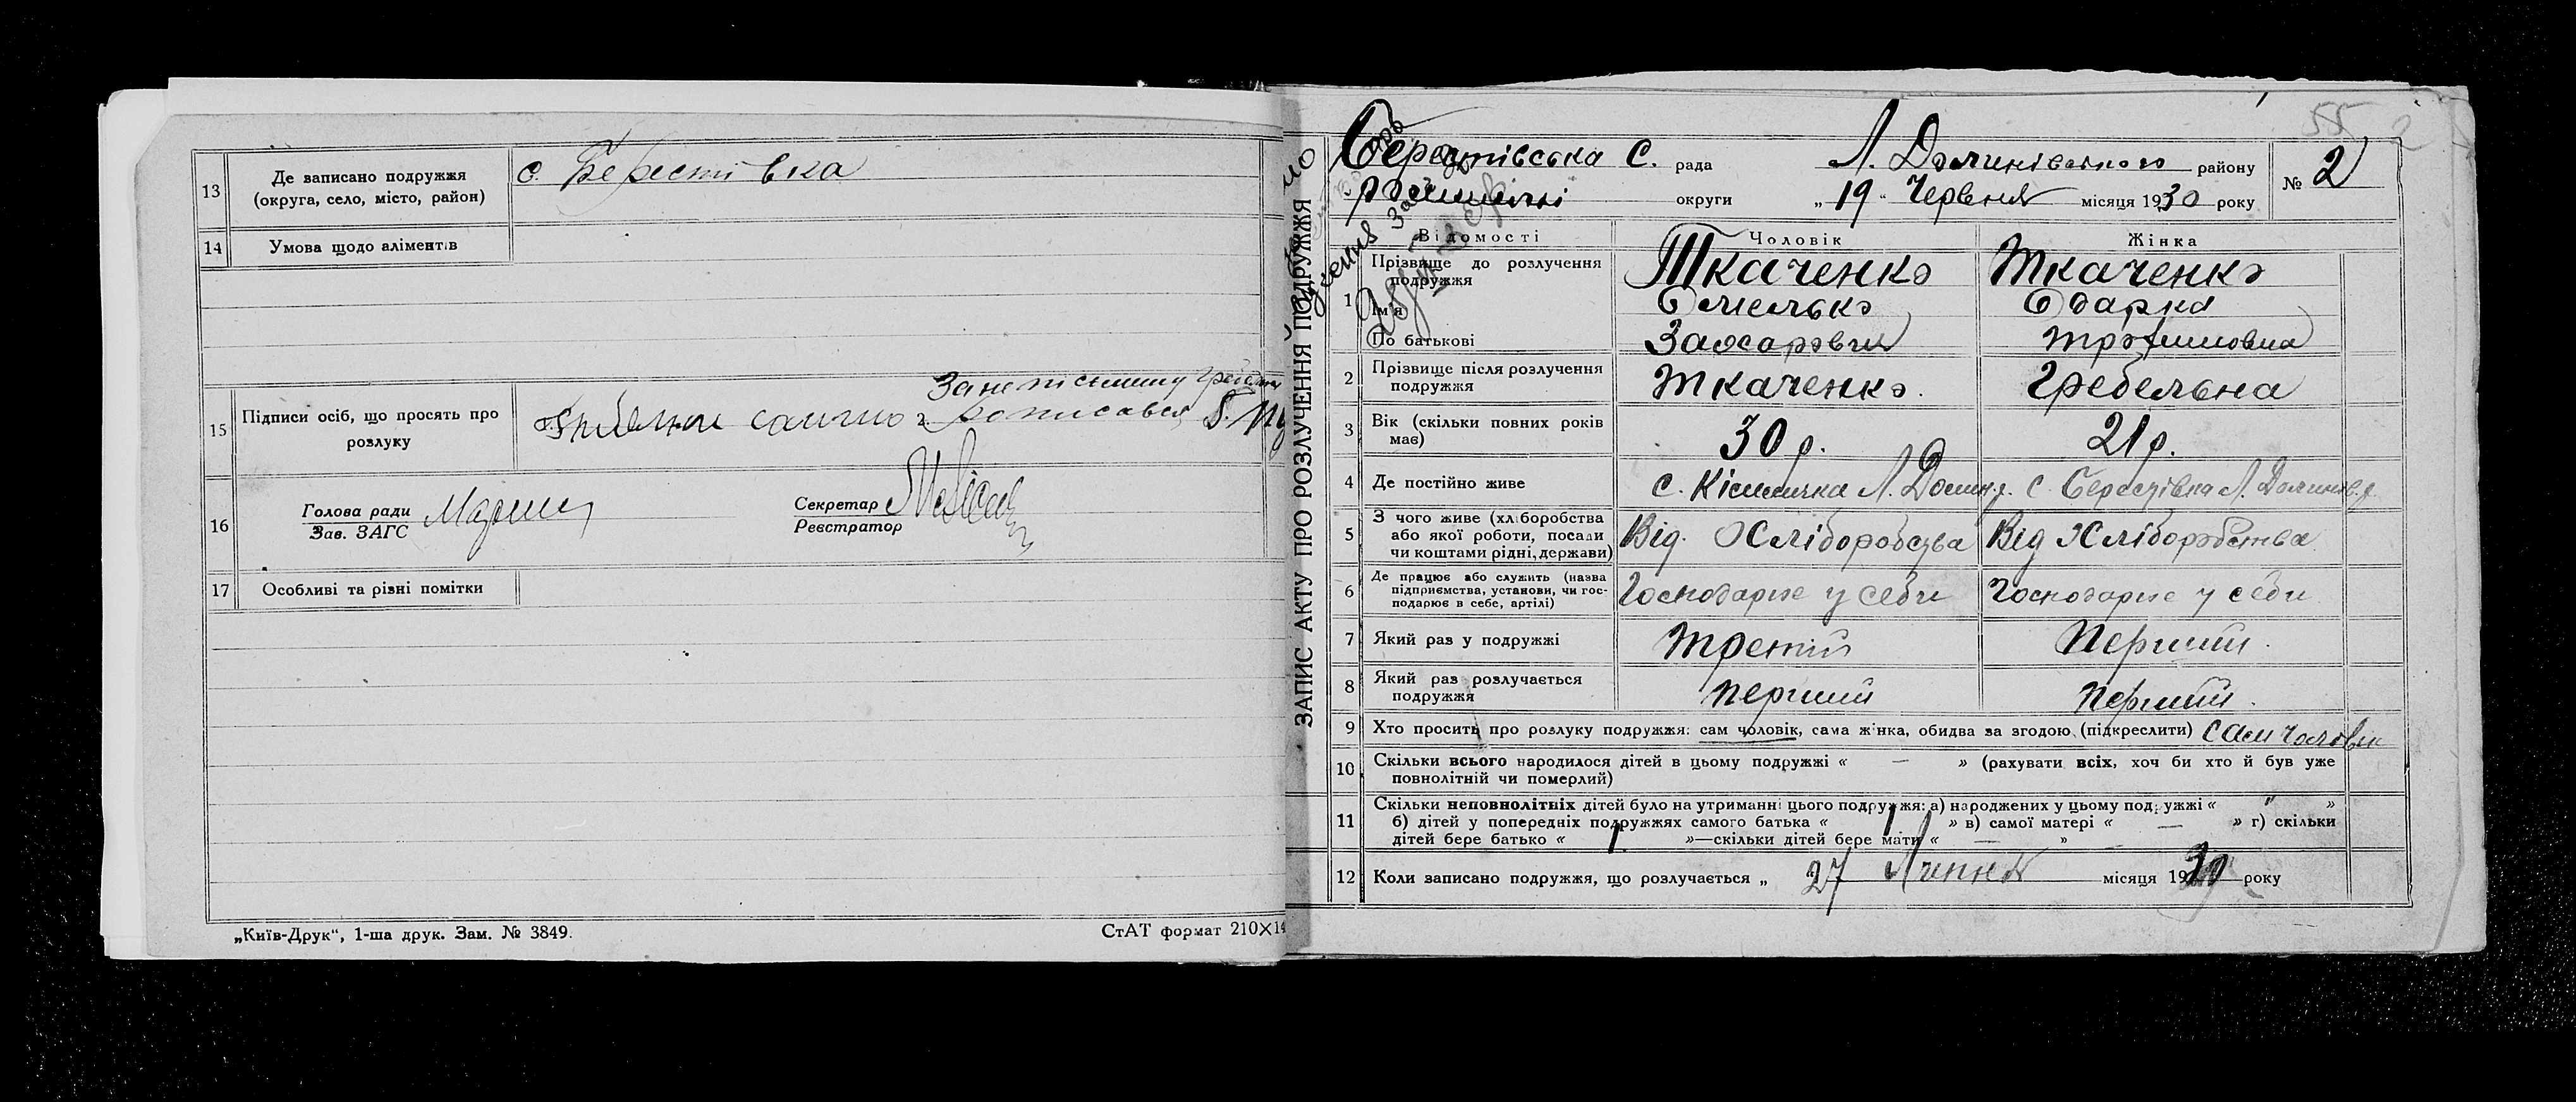 13 Де записано подружжя (округа, село, місто, район) с. Берестівка
14 Умова щодо аліментів
15 Підписи осіб, що просять про розлуку
За неписьмену
росписався
16 Голова ради
Зав. ЗАГС
Секретар
Реєстратор
17 Особливі та різні помітки
„Київ-Друк“, 1-ша друк. Зам. № 3849.
СтАТ формат 210×14
ЗАПИС АКТУ ПРО РОЗЛУЧЕННЯ ПОДРУЖЖЯ
55
Берестівська С. рада Л. Долинівського району № 2
округи „ 19 “ Червня місяця 1930 року
Відомості Чоловік Жінка
1 Прізвище до розлучення подружжя Ткаченко Ткаченко
Ім'я Омелько Одарка
По батькові Захарович Трохимовна
2 Прізвище після розлучення подружжя Ткаченко. Гребельна
3 Вік (скільки повних років має) 30 р. 21 р.
4 Де постійно живе с. Л. Долин.р. с. Берестівка Л. Долинів.р.
5 З чого живе (хліборобства або якої роботи, посади чи коштами рідні, держави) Від. Хліборобства Від Хліборобства
6 Де працює або служить (назва підприємства, установи, чи господарює в себе, артілі) Господарює у себе Господарює у себе
7 Який раз у подружжі третій Перший.
8 Який раз розлучається подружжя перший перший.
9 Хто просить про розлуку подружжя: сам чоловік, сама жінка, обидва за згодою (підкреслити) сам чоловік
10 Скільки всього народилося дітей в цьому подружжі « — » (рахувати всіх, хоч би хто й був уже
повнолітній чи померлий)
11 Скільки неповнолітніх дітей було на утриманні цього подружжя: а) народжених у цьому подружжі « " »
б) дітей у попередніх подружжях самого батька « 1 » в) самої матері « — » г) скільки
дітей бере батько « 1 »—скільки дітей бере мати « — »
12 Коли записано подружжя, що розлучається „ 27 місяця 19 року